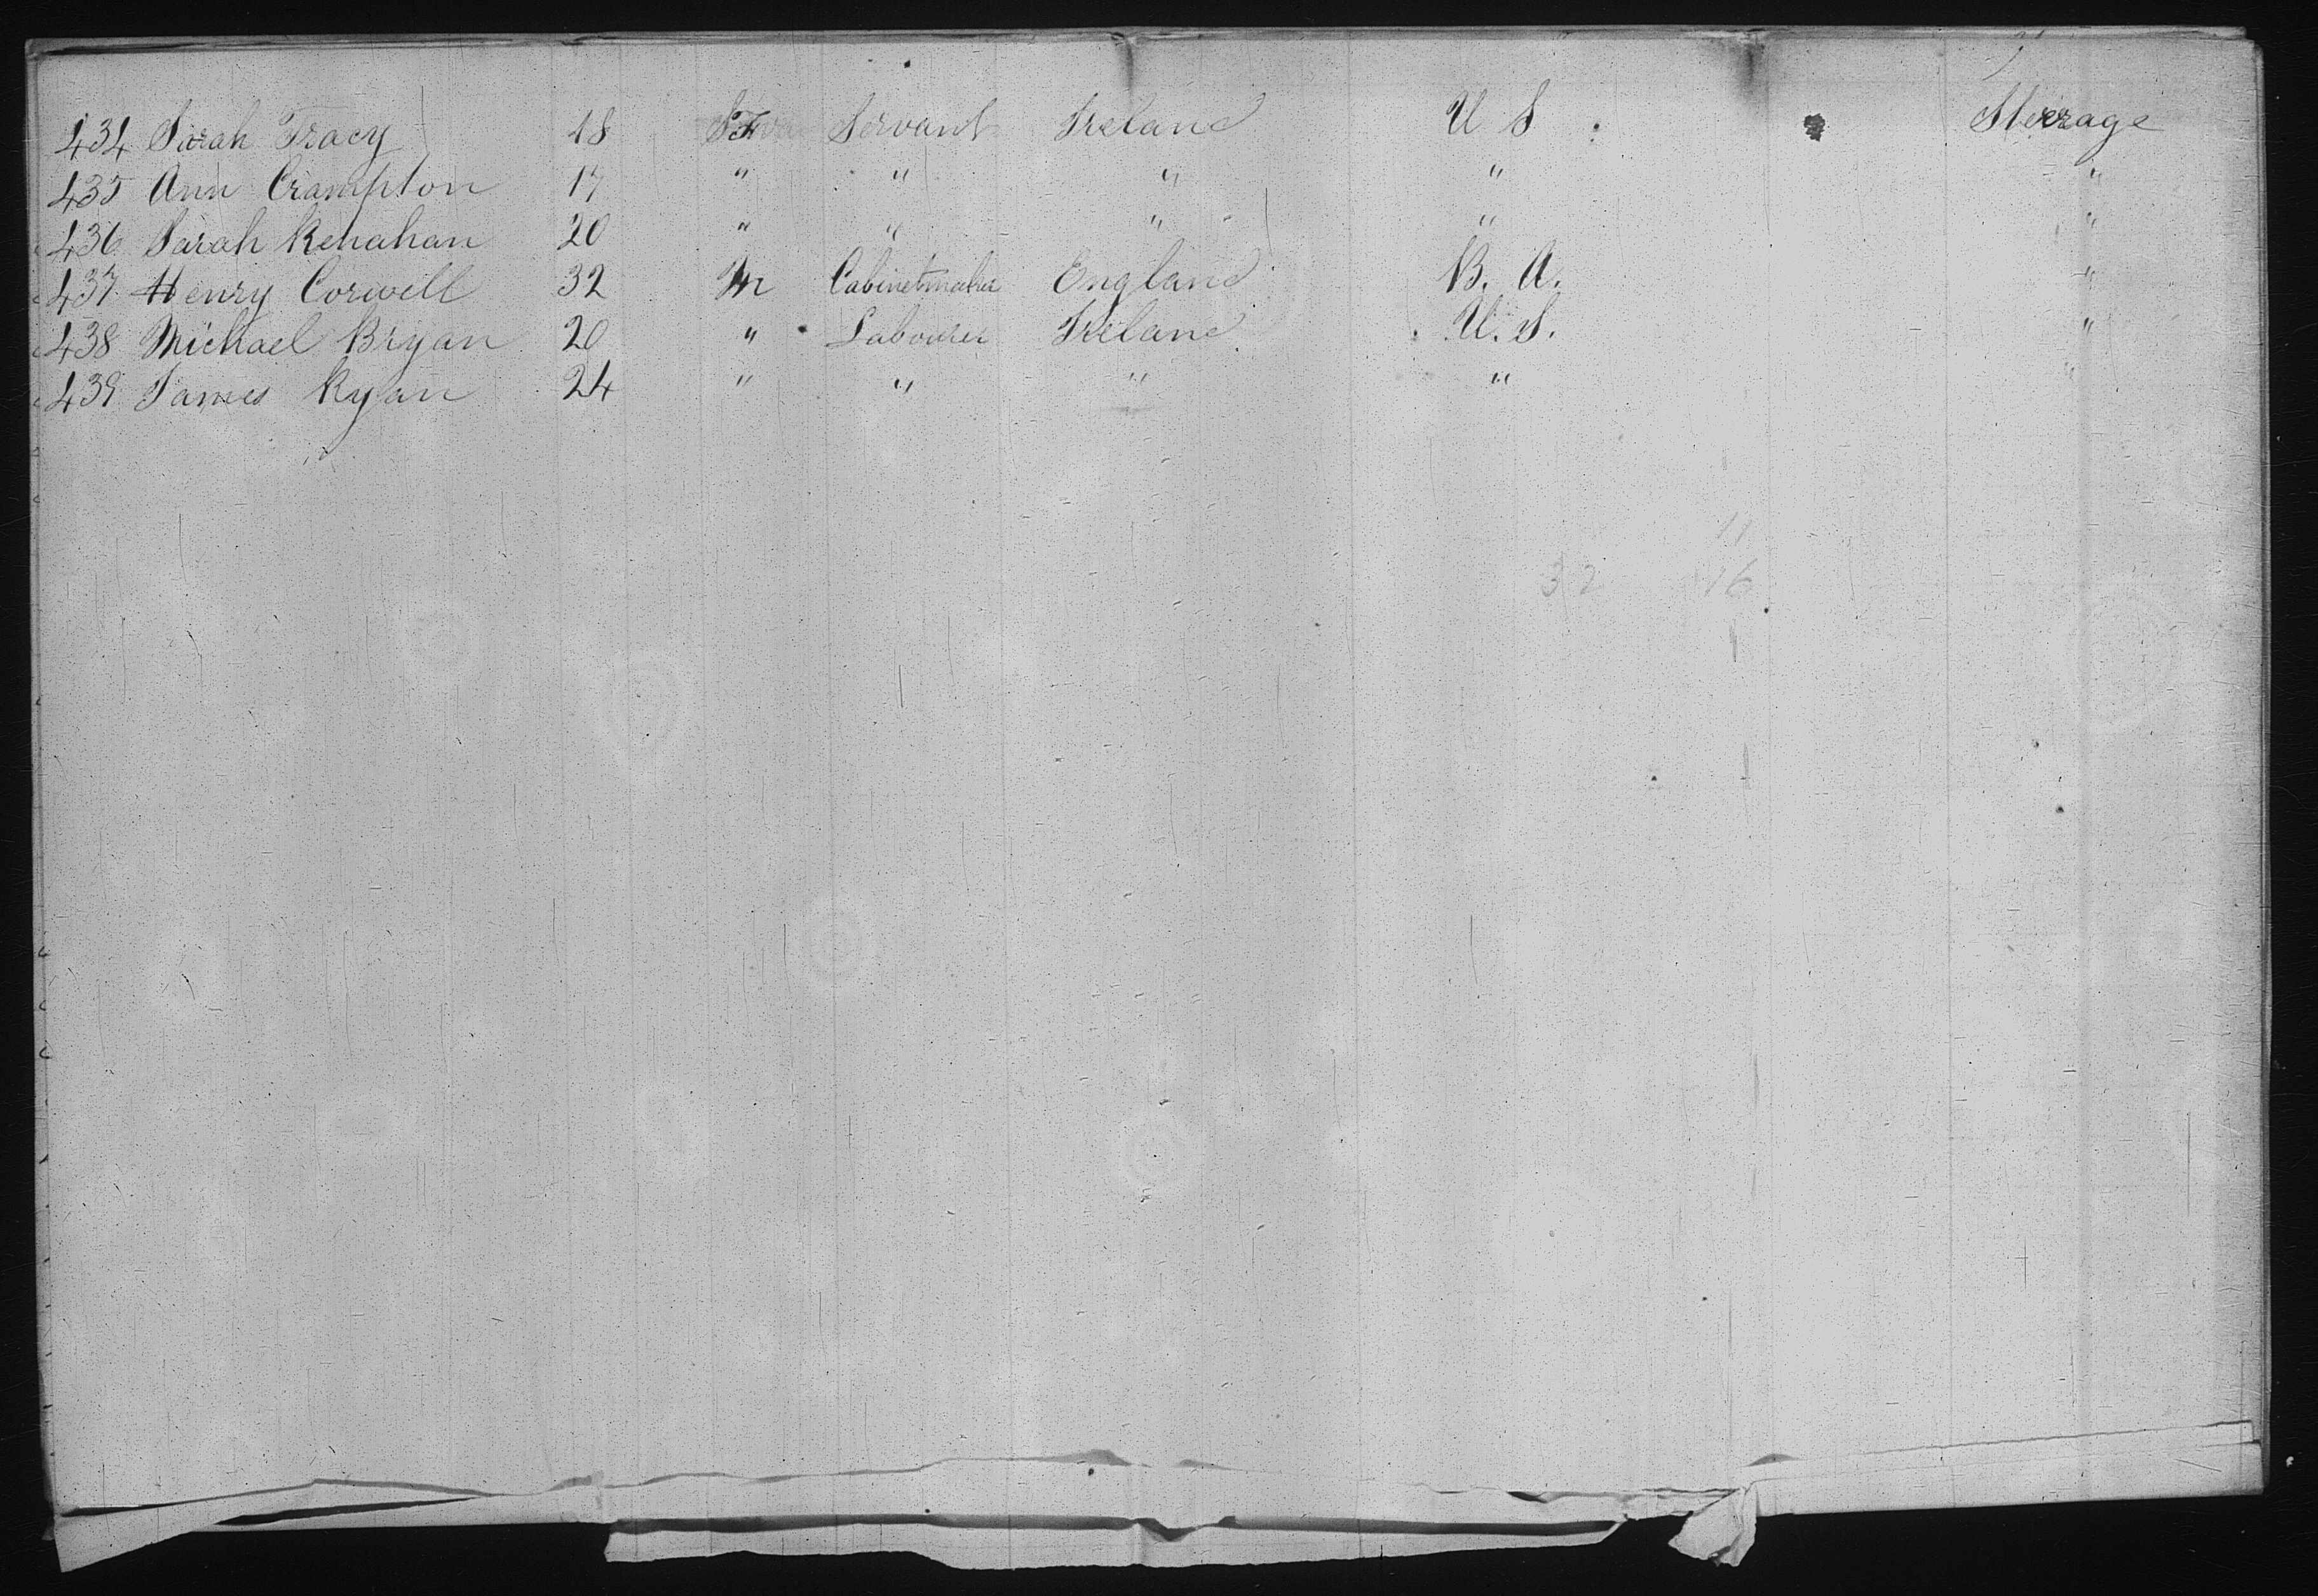 434 Sarah Tracy 18 F Servant Ireland U S Steerage
435 Ann Crampton 17 " " " " "
436 Sarah Renahan 20 " " " " "
437 Henry Corwell 32 M Cabinetmaker England B. A. "
438 Michael Bryan 20 " Labourer Ireland U. S. "
439 James Ryan 24 " " " " "
11
32 16